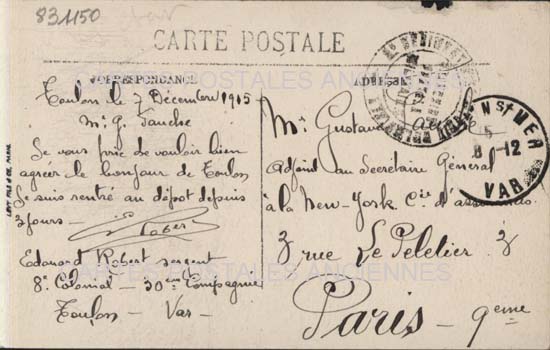 831150
CARTE POSTALE
CORRESPONDANCE
Toulon le 7 Décembre 1915
Mr G. Fauche
Je vous prie de vouloir bien
agréer le bonjour de Toulon
Je suis rentré au dépôt depuis
3 jours —
Robert
Edouard Robert sergent
8e Colonial — 30eme Compagnie
Toulon — Var —
ADRESSE
Mr Gustave
Adjoint au Secrétaire Général
à la New-York Cie d'assurances
3 rue Le Peletier 3
Paris — 9eme
Ns/MER
8-12
VAR
CARTES POSTALES ANCIENNES
CARTES POSTALES ANCIENNES